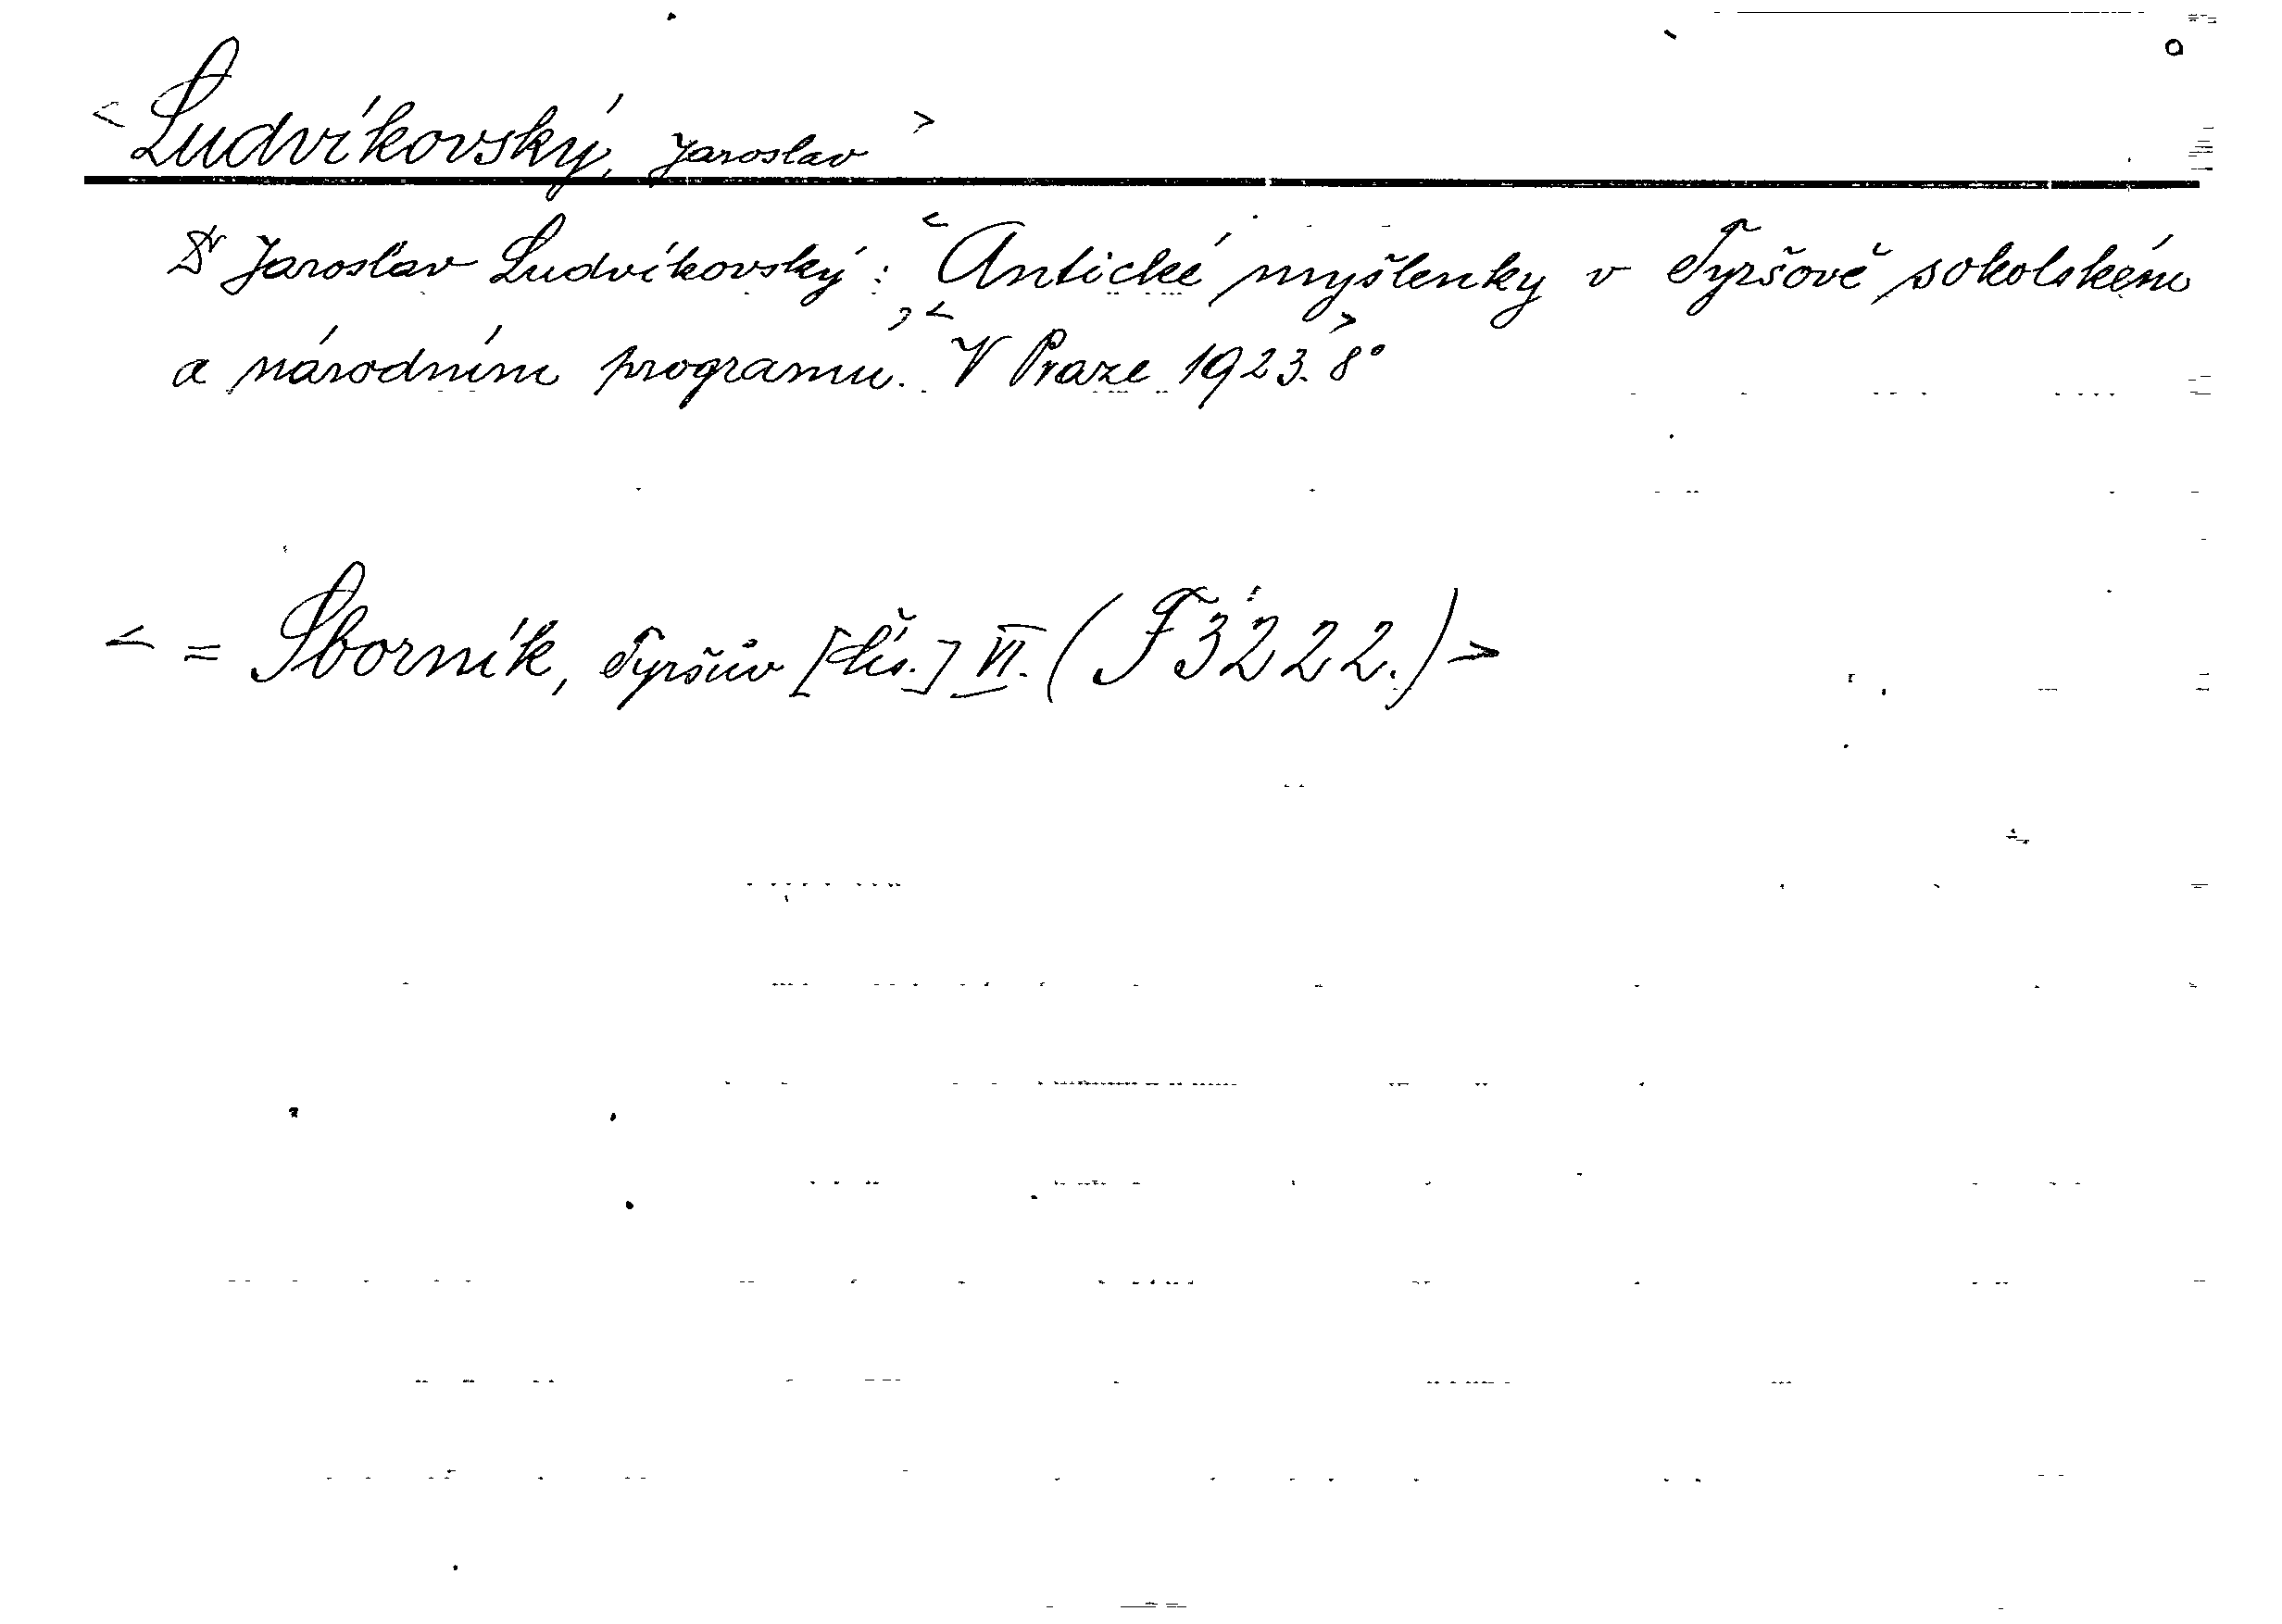 <Ludvíkovský, Jaroslav>
Dr Jaroslav Ludvíkovský: <Antické myšlenky v Tyršově sokolském
a národním programu. <V Praze 1923.> 8°
< = Sborník, Tyršův [čís.] VI. (F3222.) >